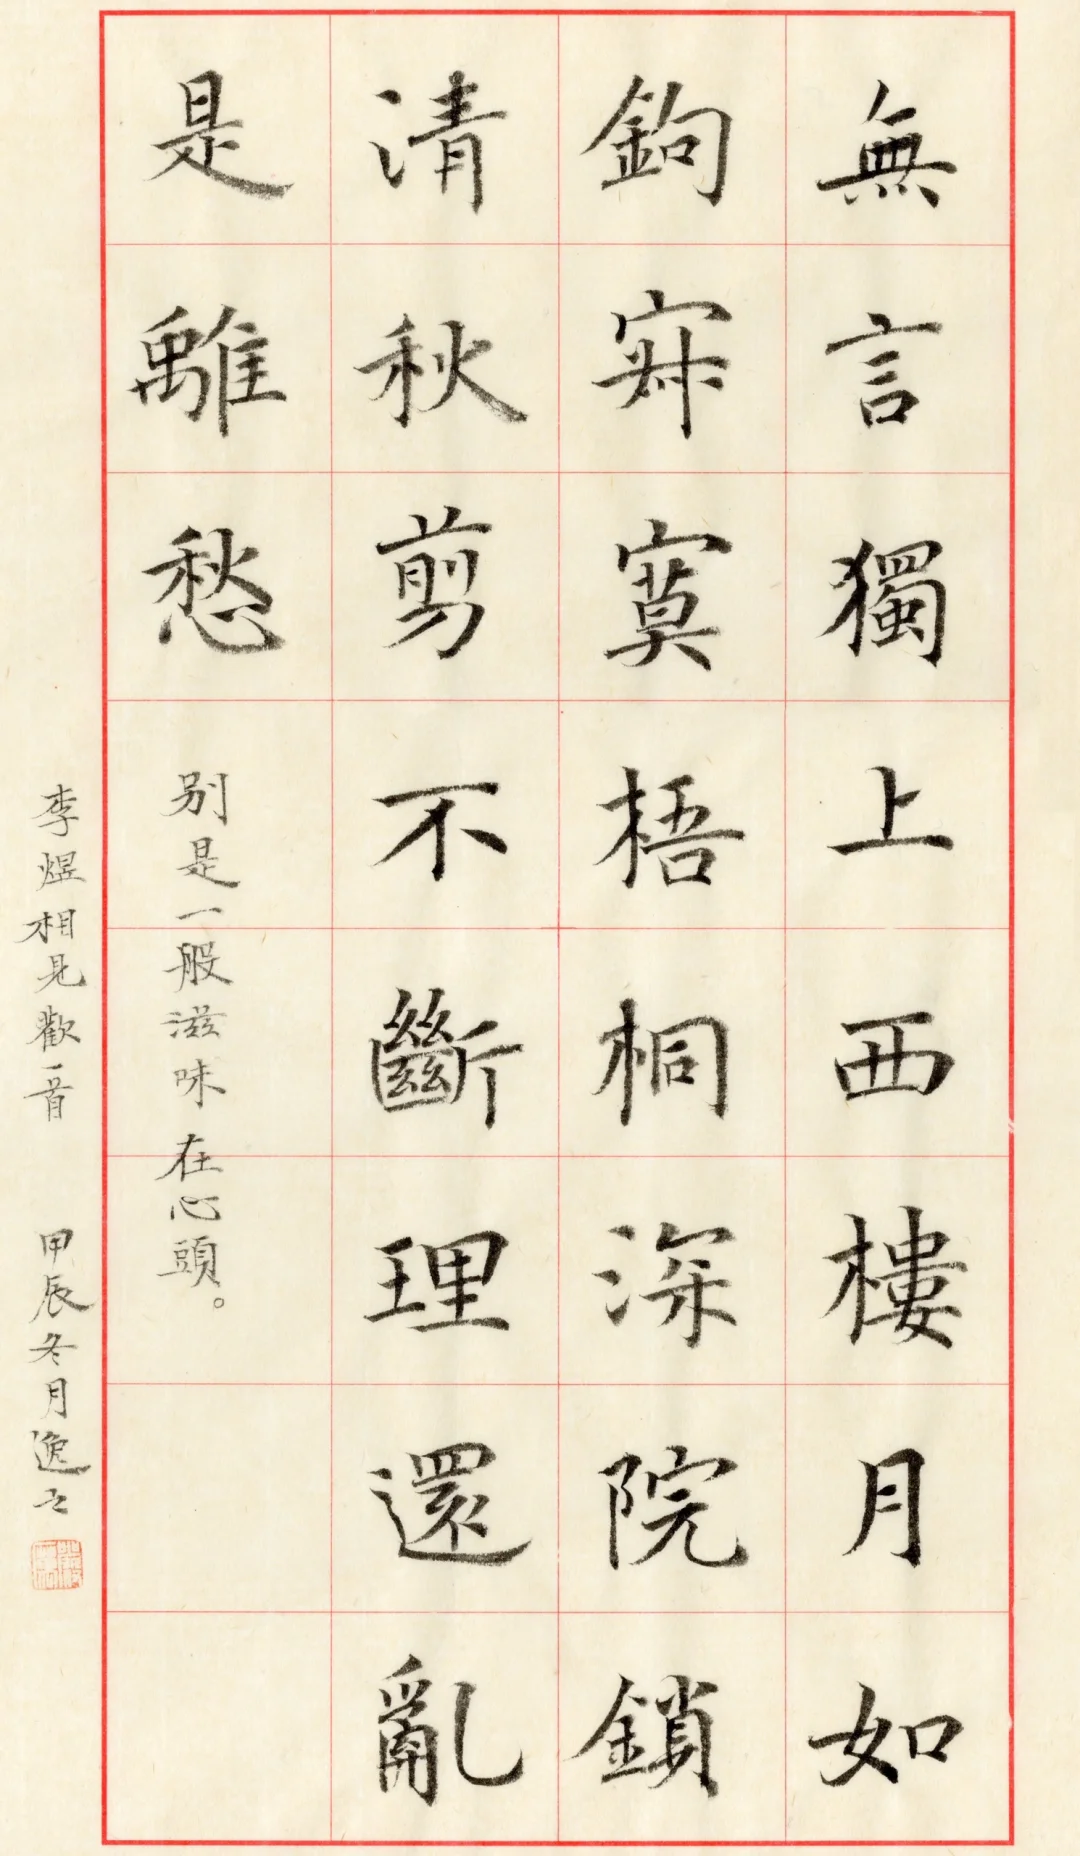 無言獨上西樓月如
鉤寂寞梧桐深院鎖
清秋剪不斷理還亂
是離愁
別是一般滋味在心頭。
李煜相見歡一首 甲辰冬月逸之